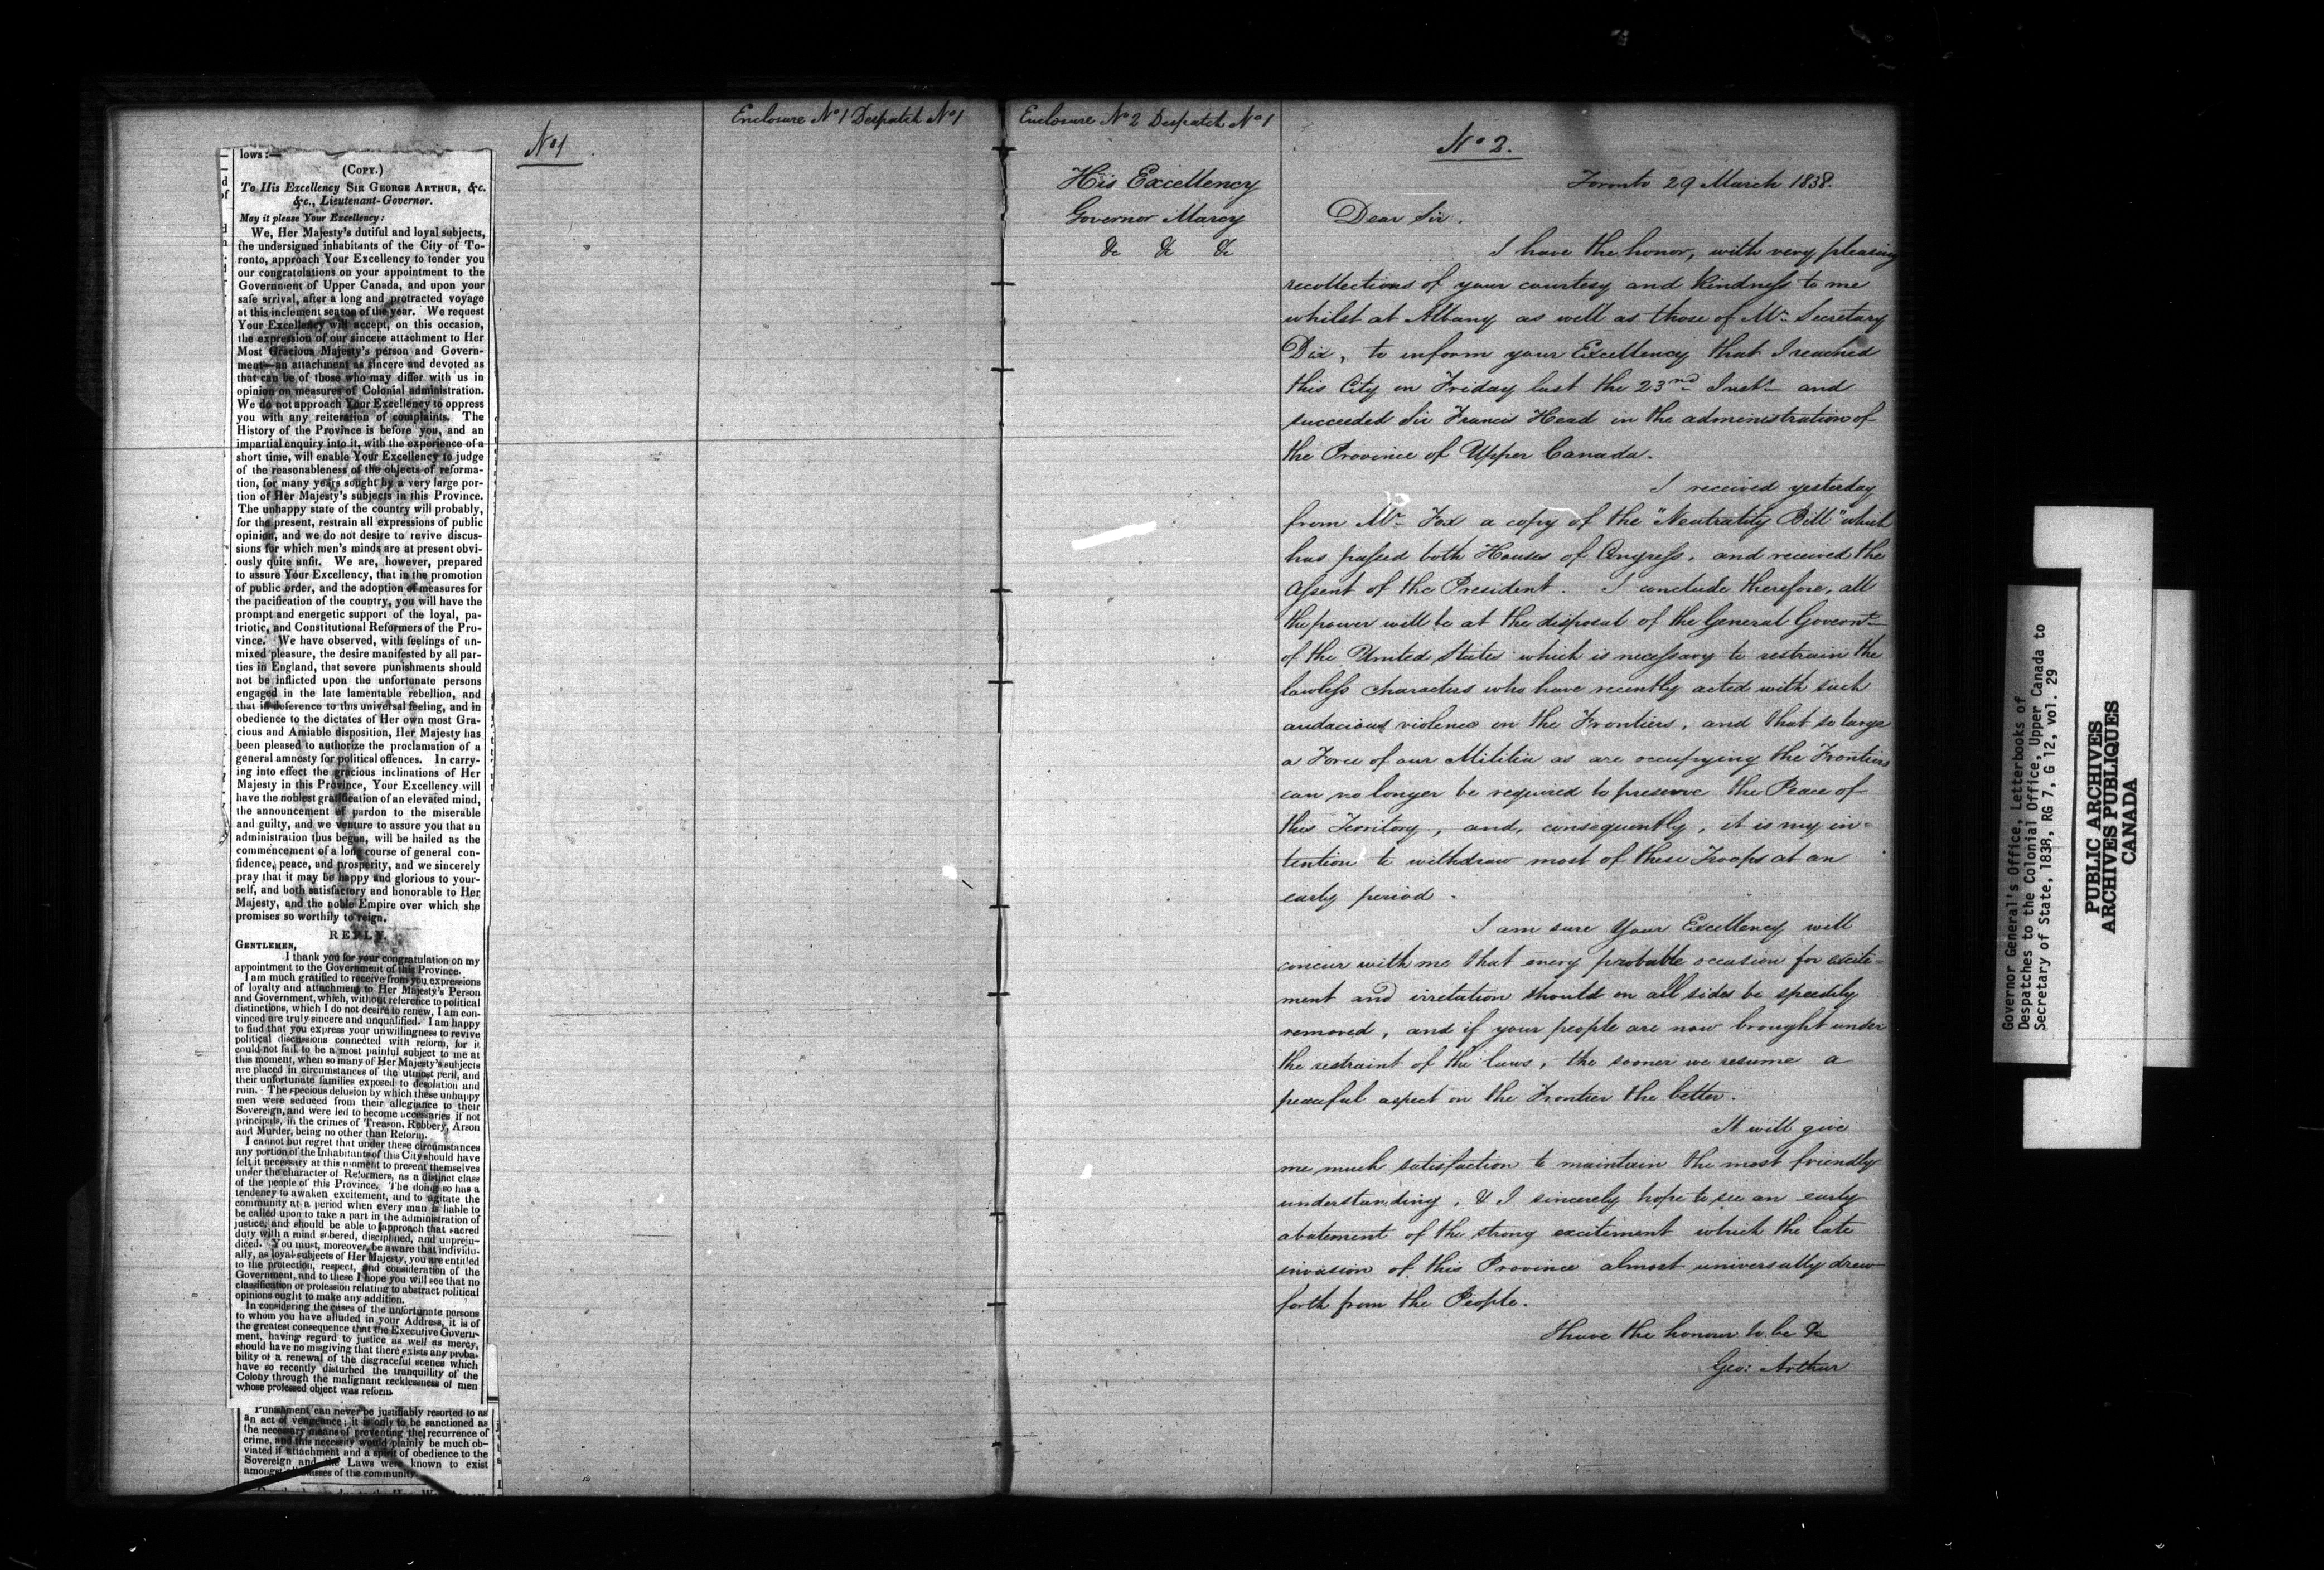 Enclosure No 1 Despatch No 1
No 1
lows:—
(COPY.)
To His Excellency SIR GEORGE ARTHUR, &c.
&c., Lieutenant-Governor.
May it please Your Excellency:
We, Her Majesty's dutiful and loyal subjects,
the undersigned inhabitants of the City of To-
ronto, approach Your Excellency to tender you
our congratulations on your appointment to the
Government of Upper Canada, and upon your
safe arrival, after a long and protracted voyage
at this inclement season of the year. We request
Your Excellency will accept, on this occasion,
the expression of our sincere attachment to Her
Most Gracious Majesty's person and Govern-
ment—an attachment as sincere and devoted as
that can be of those who may differ with us in
opinion on measures of Colonial administration.
We do not approach Your Excellency to oppress
you with any reiteration of complaints. The
History of the Province is before you, and an
impartial enquiry into it, with the experience of a
short time, will enable Your Excellency to judge
of the reasonableness of the objects of reforma-
tion, for many years sought by a very large por-
tion of Her Majesty's subjects in this Province.
The unhappy state of the country will probably,
for the present, restrain all expressions of public
opinion, and we do not desire to revive discus-
sions for which men's minds are at present obvi-
ously quite unfit. We are, however, prepared
to assure Your Excellency, that in the promotion
of public order, and the adoption of measures for
the pacification of the country, you will have the
prompt and energetic support of the loyal, pa-
triotic, and Constitutional Reformers of the Pro-
vince. We have observed, with feelings of un-
mixed pleasure, the desire manifested by all par-
ties in England, that severe punishments should
not be inflicted upon the unfortunate persons
engaged in the late lamentable rebellion, and
that in deference to this universal feeling, and in
obedience to the dictates of Her own most Gra-
cious and Amiable disposition, Her Majesty has
been pleased to authorize the proclamation of a
general amnesty for political offences. In carry-
ing into effect the gracious inclinations of Her
Majesty in this Province, Your Excellency will
have the noblest gratification of an elevated mind,
the announcement of pardon to the miserable
and guilty, and we venture to assure you that an
administration thus begun, will be hailed as the
commencement of a long course of general con-
fidence, peace, and prosperity, and we sincerely
pray that it may be happy and glorious to your-
self, and both satisfactory and honorable to Her
Majesty, and the noble Empire over which she
promises so worthily to reign.
REPLY.
GENTLEMEN,
I thank you for your congratulation on my
appointment to the Government of this Province.
I am much gratified to receive from you expressions
of loyalty and attachment to Her Majesty's Person
and Government, which, without reference to political
distinctions, which I do not desire to renew, I am con-
vinced are truly sincere and unqualified. I am happy
to find that you express your unwillingness to revive
political discussions connected with reform, for it
could not fail to be a most painful subject to me at
this moment, when so many of Her Majesty's subjects
are placed in circumstances of the utmost peril, and
their unfortunate families exposed to desolation and
ruin. The specious delusion by which these unhappy
men were seduced from their allegiance to their
Sovereign, and were led to become accessaries if not
principals, in the crimes of Treason, Robbery, Arson
and Murder, being no other than Reform.
I cannot but regret that under these circumstances
any portion of the Inhabitants of this City should have
felt it necessary at this moment to present themselves
under the character of Reformers, as a distinct class
of the people of this Province. The doing so has a
tendency to awaken excitement, and to agitate the
community at a period when every man is liable to
be called upon to take a part in the administration of
justice, and should be able to approach that sacred
duty with a mind sobered, disciplined, and unpreju-
diced. You must, moreover, be aware that individu-
ally, as loyal subjects of Her Majesty, you are entitled
to the protection, respect, and consideration of the
Government, and to these I hope you will see that no
classification or profession relating to abstract political
opinions ought to make any addition.
In considering the cases of the unfortunate persons
to whom you have alluded in your Address, it is of
the greatest consequence that the Executive Govern-
ment, having regard to justice as well as mercy,
should have no misgiving that there exists any proba-
bility of a renewal of the disgraceful scenes which
have so recently disturbed the tranquillity of the
Colony through the malignant recklessness of men
whose professed object was reform.
Punishment can never be justifiably resorted to as
an act of vengeance; it is only to be sanctioned as
the necessary means of preventing the recurrence of
crime, and this necessity would plainly be much ob-
viated if attachment and a spirit of obedience to the
Sovereign and the Laws were known to exist
amongst all classes of the community.
Enclosure No 2 Despatch No 1
No 2.
His Excellency
Governor Marcy
&c &c &c
Toronto 29 March 1838.
Dear Sir.
I have the honor, with very pleasing
recollections of your courtesy and kindness to me
whilst at Albany as well as those of Mr. Secretary
Dix, to inform your Excellency that I reached
this City on Friday last the 23rd Inst. and
succeeded Sir Francis Head in the administration of
the Province of Upper Canada.
I received yesterday
from Mr. Fox a copy of the "Neutrality Bill" which
has passed both Houses of Congress, and received the
Assent of the President. I conclude therefore, all
the power will be at the disposal of the General Governt.
of the United States which is necessary to restrain the
lawless characters who have recently acted with such
audacious violence on the Frontiers, and that so large
a Force of our Militia as are occupying the Frontiers
can no longer be required to preserve the Peace of
this Territory, and, consequently, it is my in=
tention to withdraw most of these Troops at an
early period.
I am sure Your Excellency will
concur with me that every probable occasion for excite=
ment and irritation should on all sides be speedily
removed, and if your people are now brought under
the restraint of the laws, the sooner we resume a
peaceful aspect on the Frontier the better.
It will give
me much satisfaction to maintain the most friendly
understanding, & I sincerely hope to see an early
abatement of the strong excitement which the late
invasion of this Province almost universally drew
forth from the People.
I have the honour to be &c
Geo: Arthur
Governor General's Office, Letterbooks of
Despatches to the Colonial Office, Upper Canada to
Secretary of State, 1838, RG 7, G 12, vol. 29
PUBLIC ARCHIVES
ARCHIVES PUBLIQUES
CANADA